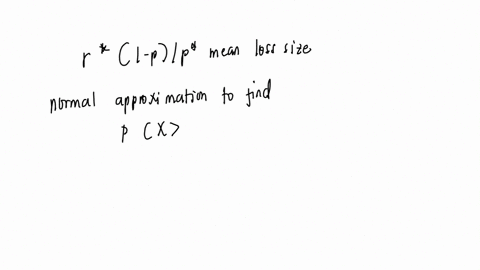 r * (1-p)/p * mean loss size
normal approximation to find
P (X>